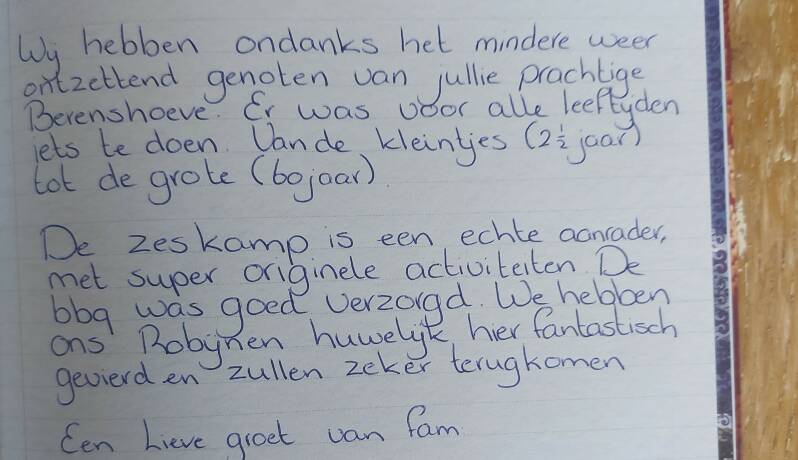 Wij hebben ondanks het mindere weer
ontzettend genoten van jullie prachtige
Berenshoeve. Er was voor alle leeftijden
iets te doen. Van de kleintjes (2½ jaar)
tot de grote (60 jaar)
De zeskamp is een echte aanrader,
met super originele activiteiten. De
bbq was goed verzorgd. We hebben
ons Robijnen huwelijk hier fantastisch
gevierd en zullen zeker terugkomen
Een Lieve groet van fam